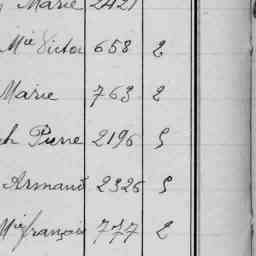 Marie 2421
Mie Victor 658 2
Marie 763 2
Pierre 2196 5
Armand 2326 5
Mie françois 777 2